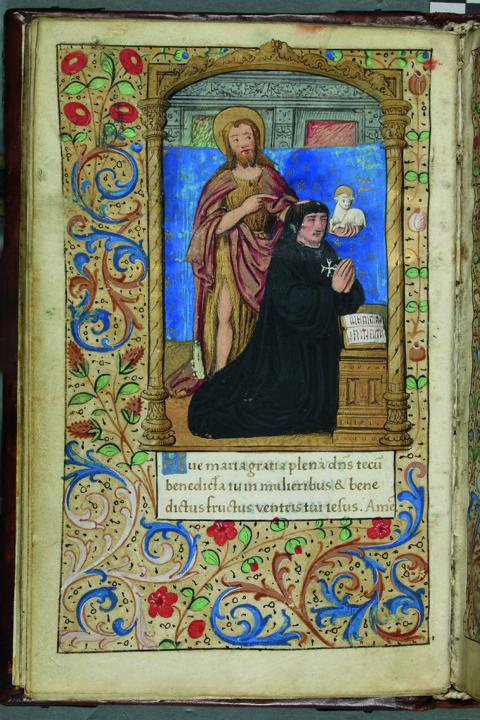 Aue maria gratia plena dñs tecū
benedicta tu in mulieribus & bene
dictus fructus ventris tui iesus. Amē